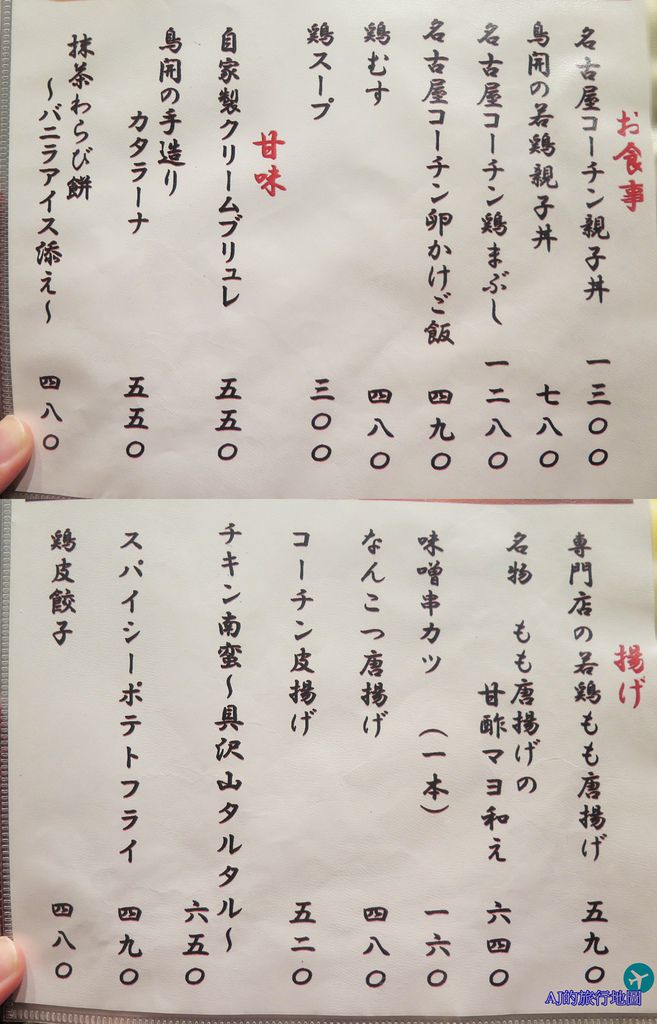 お食事
名古屋コーチン親子丼 一三〇〇
鳥開の若鶏親子丼 七八〇
名古屋コーチン鶏まぶし 一二八〇
名古屋コーチン卵かけご飯 四九〇
鶏むす 四八〇
鶏スープ 三〇〇
甘味
自家製クリームブリュレ 五五〇
鳥開の手造り
カタラーナ 五五〇
抹茶わらび餅
〜バニラアイス添え〜 四八〇
揚げ
専門店の若鶏もも唐揚げ 五九〇
名物 もも唐揚げの
甘酢マヨ和え 六四〇
味噌串カツ (一本) 一六〇
なんこつ唐揚げ 四八〇
コーチン皮揚げ 五二〇
チキン南蛮〜具沢山タルタル〜 六五〇
スパイシーポテトフライ 四九〇
鶏皮餃子 四八〇
AJ的旅行地圖